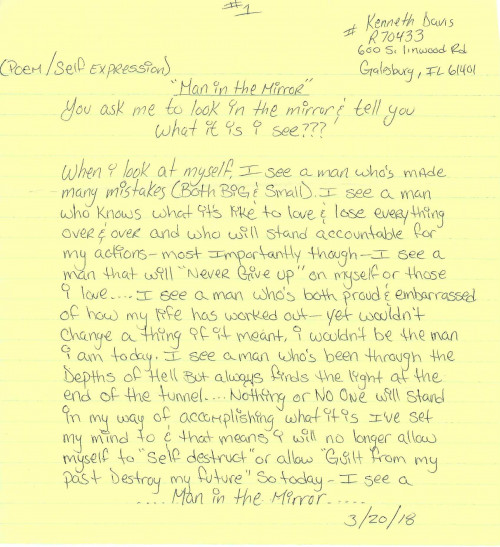 #1
# Kenneth Davis
R70433
600 S. linwood Rd
Galesburg, IL 61401
(POEM/Self EXPRESSION)
"Man in the Mirror"
You ask me to look in the mirror & tell you
what it is i see???
When i look at myself, I see a man who's made
many mistakes (Both BIG & Small). I see a man
who knows what it's like to love & lose everything
over & over and who will stand accountable for
my actions-most Importantly though-I see a
man that will "Never Give up" on myself or those
i love.... I see a man who's both proud & embarrassed
of how my life has worked out-yet wouldn't
change a thing if it meant, i wouldn't be the man
i am today. I see a man who's been through the
Depths of Hell But always finds the light at the
end of the tunnel.... Nothing or NO ONE will stand
in my way of accomplishing what it is I've set
my mind to & that means i will no longer allow
myself to "Self destruct" or allow "Guilt from my
past Destroy my future" So today-I see a
.... Man in the Mirror.....
3/20/18